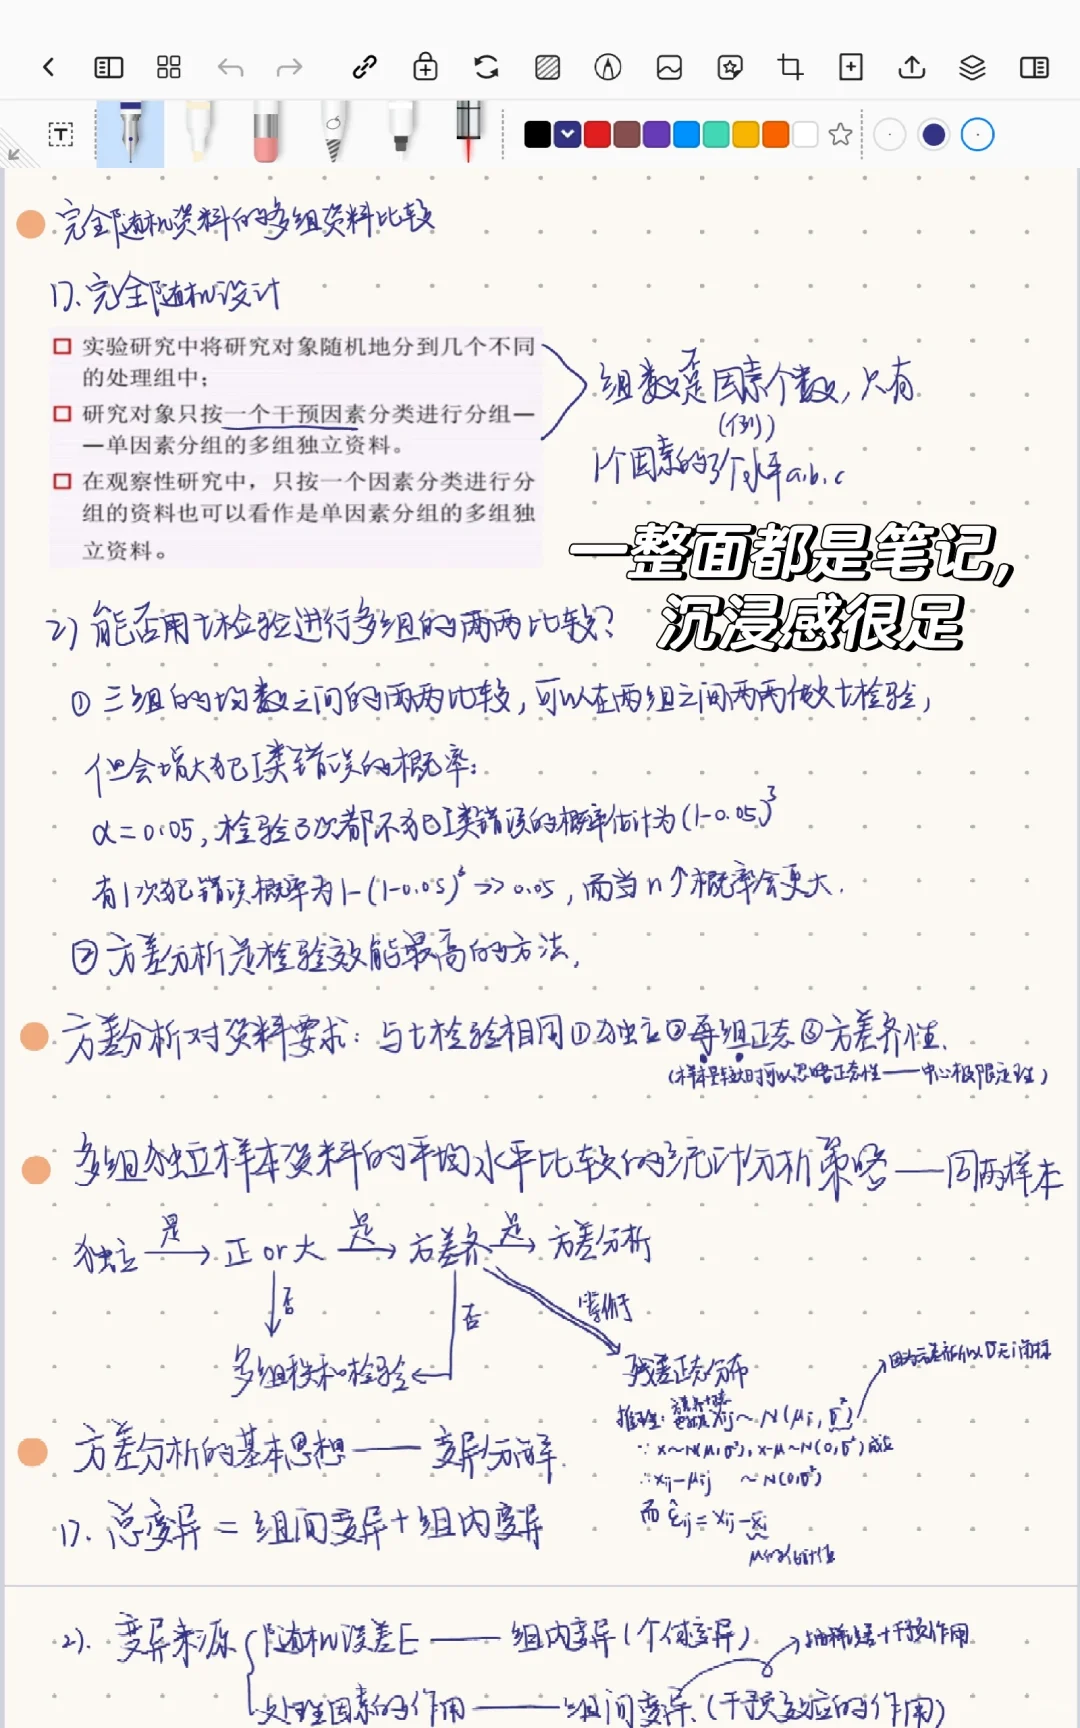 T
完全随机资料的多组资料比较
1). 完全随机设计
实验研究中将研究对象随机地分到几个不同
的处理组中；
研究对象只按一个干预因素分类进行分组—
—单因素分组的多组独立资料。
在观察性研究中，只按一个因素分类进行分
组的资料也可以看作是单因素分组的多组独
立资料。
否
组数是因素个数，只有
(例)
1个因素的3个水平a.b.c
一整面都是笔记，
沉浸感很足
2) 能否用t检验进行多组的两两比较？
① 三组的均数之间的两两比较，可以在两组之间两两做t检验，
但会增大犯I类错误的概率：
α=0.05，检验3次都不犯I类错误的概率估计为(1-0.05)³
有1次犯错误概率为1-(1-0.05)³>>0.05，而当n↑概率会更大.
② 方差分析是检验效能最高的方法.
方差分析对资料要求：与t检验相同①独立②每组正态③方差齐性.
(样本量较大时可以忽略正态性——中心极限定理)
多组独立样本资料的平均水平比较的统计分析策略——同两样本
独立 是→ 正or大 是→ 方差齐 是→ 方差分析
否
否
等价于
多组秩和检验
残差正态分布
因为方差齐所以σ无i角标
推理: xij~N(μi,σ²)
∵x~N(μ,σ²), x-μ~N(0,σ²)成立
∴xij-μij ~N(0,σ²)
而 ε̂ij=xij-x̄i
μ的估计值
方差分析的基本思想——变异分解.
1). 总变异=组间变异+组内变异
2). 变异来源 随机误差E——组内变异(个体变异)
抽样误差+干预作用
处理因素的作用——组间变异.(干预效应的作用)